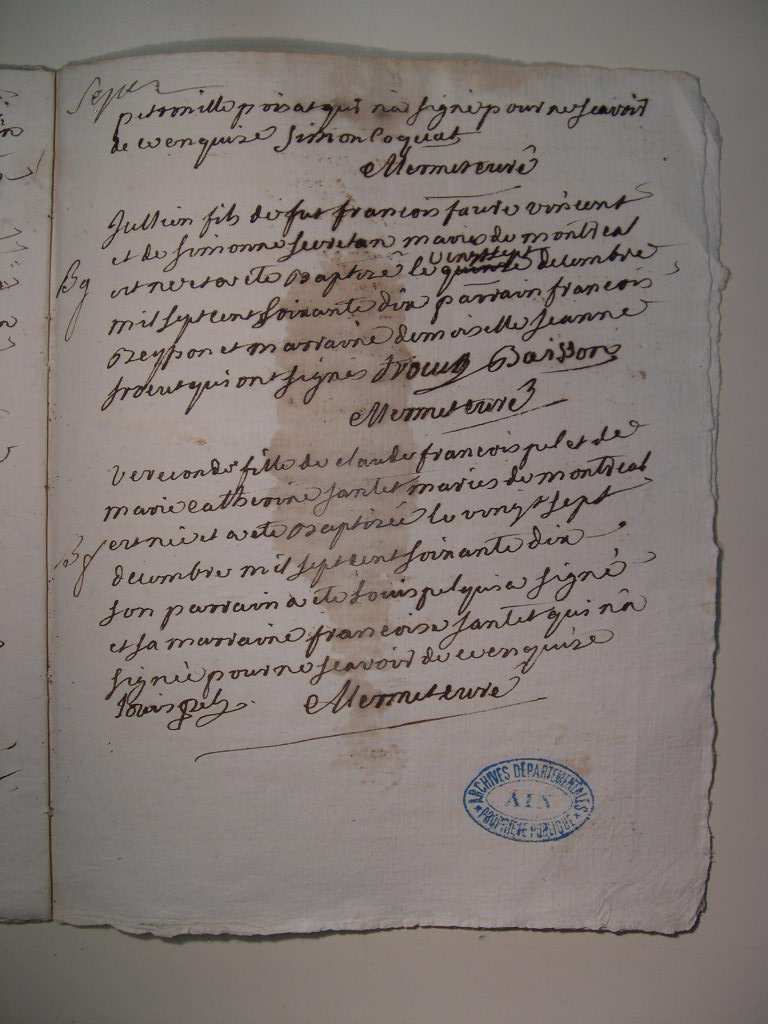 petronille poisat qui n'a signé pour ne scavoir
de ce enquise Simon Coquat
Mermet curé
Jullien fils de fut francois faure vincent
et de simonne secretan maries de montreal
est ne et a ete Baptisé le vingt sept decembre
mil sept cent soixante dix parrain francois
et marraine demoiselle jeanne
qui ont signés
Mermet curé
Bg
fille de claude francois pel et de
marie catherine santet maries de montreal
est née et a ete Baptisée le vingt sept
decembre mil sept cent soixante dix
son parrain a ete Louis pel qui a signé
et sa marraine francoise santet qui n'a
signée pour ne scavoir de ce enquize
Louis pel Mermet curé
ARCHIVES DÉPARTEMENTALES
AIN
PROPRIÉTÉ PUBLIQUE